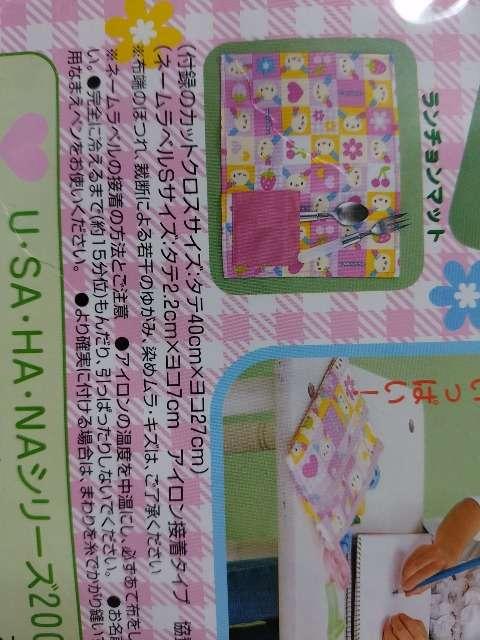 ランチョンマット
いっぱいー
(付録のカットクロスサイズ:タテ40cm×ヨコ27cm)
(ネームラベルSサイズ:タテ2.2cm×ヨコ7cm アイロン接着タイプ 協
※布端のほつれ、裁断による若干のゆがみ、染めムラ・キズは、ご了承ください
※ネームラベルの接着の方法とご注意 ●アイロンの温度を中温にし、必ずあて布をし
い。●完全に冷えるまで(約15分位)もんだり、引っぱったりしないでください。●お名前
用なまえペンをお使いください。●より確実に付ける場合は、まわりを糸でかがり縫い
U・SA・HA・NAシリーズ200